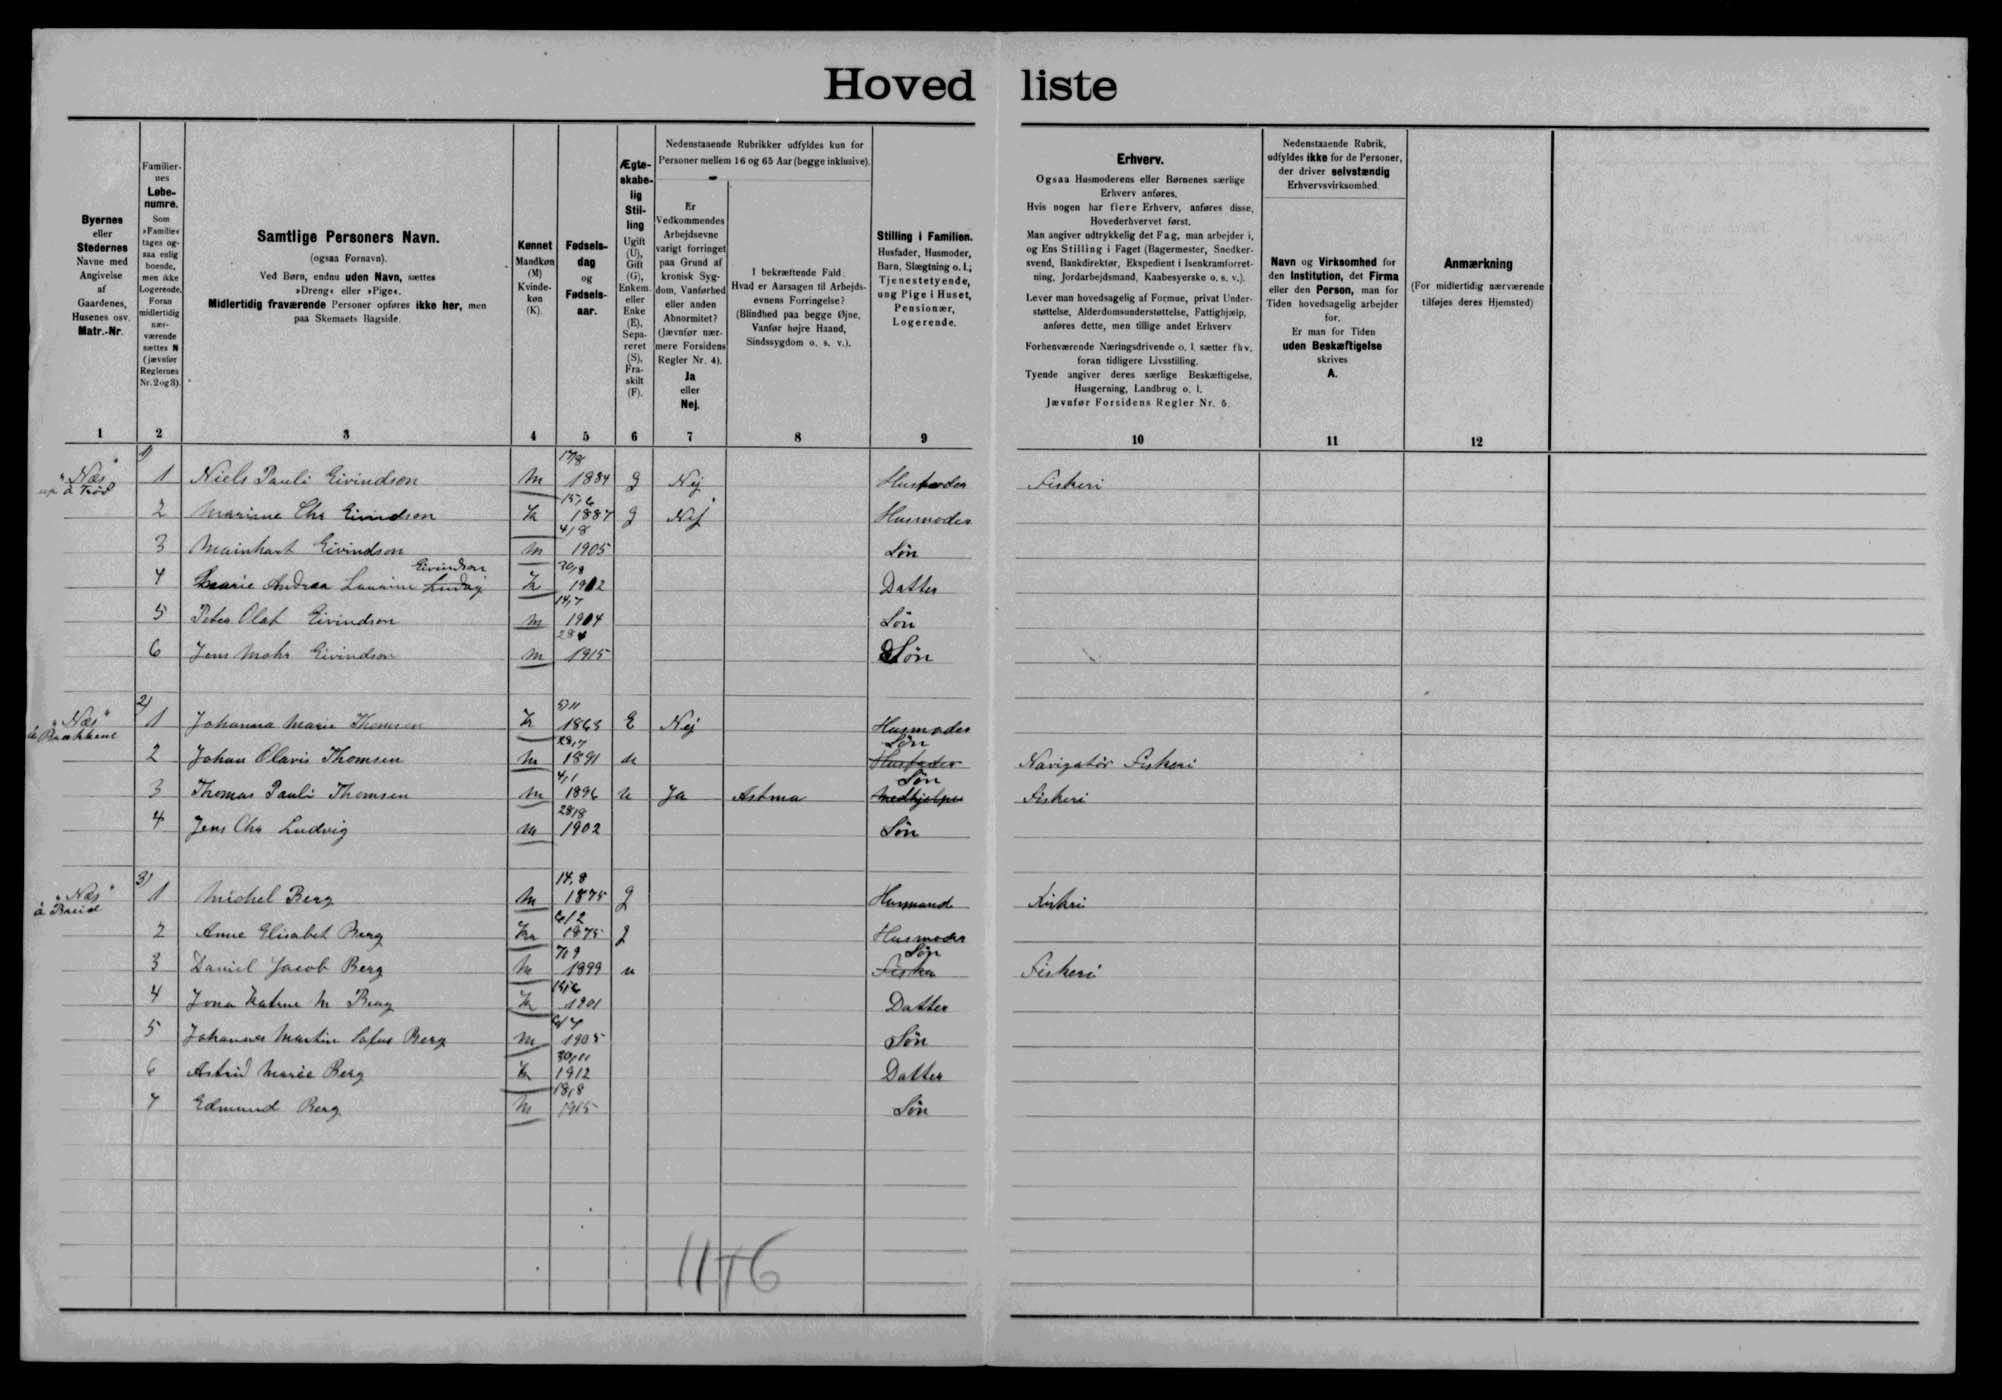 Hovedliste
Byernes
eller
Stedernes
Navne med
Angivelse
af
Gaardenes,
Husenes osv.
Matr.-Nr.
Familier-
nes
Løbe-
numre.
Som
»Familie«
tages og-
saa enlig
boende,
men ikke
Logerende.
Foran
midlertidig
nær-
værende
sættes N
(jævnfør
Reglernes
Nr. 2 og 3).
Samtlige Personers Navn.
(ogsaa Fornavn).
Ved Børn, endnu uden Navn, sættes
»Dreng« eller »Pige«.
Midlertidig fraværende Personer opføres ikke her, men
paa Skemaets Bagside.
Kønnet
Mandkøn
(M)
Kvinde-
køn
(K).
Fødsels-
dag
og
Fødsels-
aar.
Ægte-
skabe-
lig
Stil-
ling
Ugift
(U),
Gift
(G),
Enkem.
eller
Enke
(E),
Sepa-
reret
(S),
Fra-
skilt
(F).
Nedenstaaende Rubrikker udfyldes kun for
Personer mellem 16 og 65 Aar (begge inklusive).
Er
Vedkommendes
Arbejdsevne
varigt forringet
paa Grund af
kronisk Syg-
dom, Vanførhed
eller anden
Abnormitet?
(Jævnfør nær-
mere Forsidens
Regler Nr. 4).
Ja
eller
Nej.
I bekræftende Fald:
Hvad er Aarsagen til Arbejds-
evnens Forringelse?
(Blindhed paa begge Øjne,
Vanfør højre Haand,
Sindssygdom o. s. v.).
Stilling i Familien.
Husfader, Husmoder,
Barn, Slægtning o. l.;
Tjenestetyende,
ung Pige i Huset,
Pensionær,
Logerende.
Erhverv.
Ogsaa Husmoderens eller Børnenes særlige
Erhverv anføres.
Hvis nogen har flere Erhverv, anføres disse,
Hovederhvervet først.
Man angiver udtrykkelig det Fag, man arbejder i,
og Ens Stilling i Faget (Bagermester, Snedker-
svend, Bankdirektør, Ekspedient i Isenkramforret-
ning, Jordarbejdsmand, Kaabesyerske o. s. v.).
Lever man hovedsagelig af Formue, privat Under-
støttelse, Alderdomsunderstøttelse, Fattighjælp,
anføres dette, men tillige andet Erhverv
Forhenværende Næringsdrivende o. l. sætter fhv.
foran tidligere Livsstilling.
Tyende angiver deres særlige Beskæftigelse,
Husgerning, Landbrug o. l.
Jævnfør Forsidens Regler Nr. 5.
Nedenstaaende Rubrik,
udfyldes ikke for de Personer,
der driver selvstændig
Erhvervsvirksomhed.
Navn og Virksomhed for
den Institution, det Firma
eller den Person, man for
Tiden hovedsagelig arbejder
for.
Er man for Tiden
uden Beskæftigelse
skrives
A.
Anmærkning
(For midlertidig nærværende
tilføjes deres Hjemsted)
1 2 3 4 5 6 7 8 9 10 11 12
1) 17/8
"Næs" 1 Niels Pauli Eivindson M 1884 g Nej Husfader Fiskeri
á Trød 15/6
2 Marine Chr Eivindson K 1887 g Nej Husmoder
4/8
3 Mainhart Eivindson M 1905 Søn
Eivindson
4 Marie Andrea Laurine Ludvig K 1912 Datter
14/7
5 Peter Olaf Eivindson M 1914 Søn
28/4
6 Jens Mohr Eivindson M 1915 Søn
2) 5/11
"Næs" 1 Johanna Marie Thomsen K 1863 E Nej Husmoder
28/7 Søn
2 Johan Olavis Thomsen M 1891 u Husfader Navigatör Fiskeri
4/1 Søn
3 Thomas Pauli Thomsen M 1896 u Ja Astma Medhjelper Fiskeri
28/8
4 Jens Chr Ludvig M 1902 Søn
3) 14/8
"Næs" 1 Michel Berg M 1875 g Husmand Fiskeri
6/12
2 Anne Elisabet Berg K 1875 g Husmoder
7/9 Søn
3 Daniel Jacob Berg M 1899 u Fisker Fiskeri
4 Jona Katrine M Berg K 1901 Datter
6/7
5 Johannes Martin Sofus Berg M 1905 Søn
30/11
6 Astrid Marie Berg K 1912 Datter
18/8
7 Edmund Berg M 1915 Søn
11+6